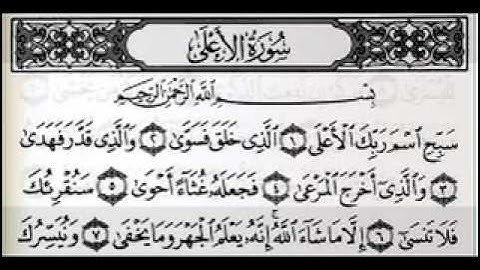 سُورَةُ الأَعْلَى
بِسْمِ اللَّهِ الرَّحْمَٰنِ الرَّحِيمِ
سَبِّحِ اسْمَ رَبِّكَ الْأَعْلَى ١ الَّذِي خَلَقَ فَسَوَّىٰ ٢ وَالَّذِي قَدَّرَ فَهَدَىٰ
٣ وَالَّذِي أَخْرَجَ الْمَرْعَىٰ ٤ فَجَعَلَهُ غُثَاءً أَحْوَىٰ ٥ سَنُقْرِئُكَ
فَلَا تَنسَىٰ ٦ إِلَّا مَا شَاءَ اللَّهُ إِنَّهُ يَعْلَمُ الْجَهْرَ وَمَا يَخْفَىٰ ٧ وَنُيَسِّرُكَ